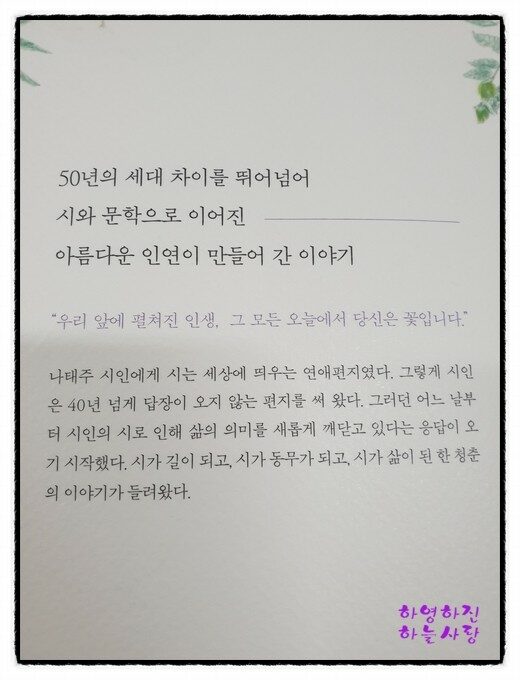 50년의 세대 차이를 뛰어넘어
시와 문학으로 이어진
아름다운 인연이 만들어 간 이야기
“우리 앞에 펼쳐진 인생, 그 모든 오늘에서 당신은 꽃입니다.”
나태주 시인에게 시는 세상에 띄우는 연애편지였다. 그렇게 시인
은 40년 넘게 답장이 오지 않는 편지를 써 왔다. 그러던 어느 날부
터 시인의 시로 인해 삶의 의미를 새롭게 깨닫고 있다는 응답이 오
기 시작했다. 시가 길이 되고, 시가 동무가 되고, 시가 삶이 된 한 청춘
의 이야기가 들려왔다.
하영하진
하늘사랑